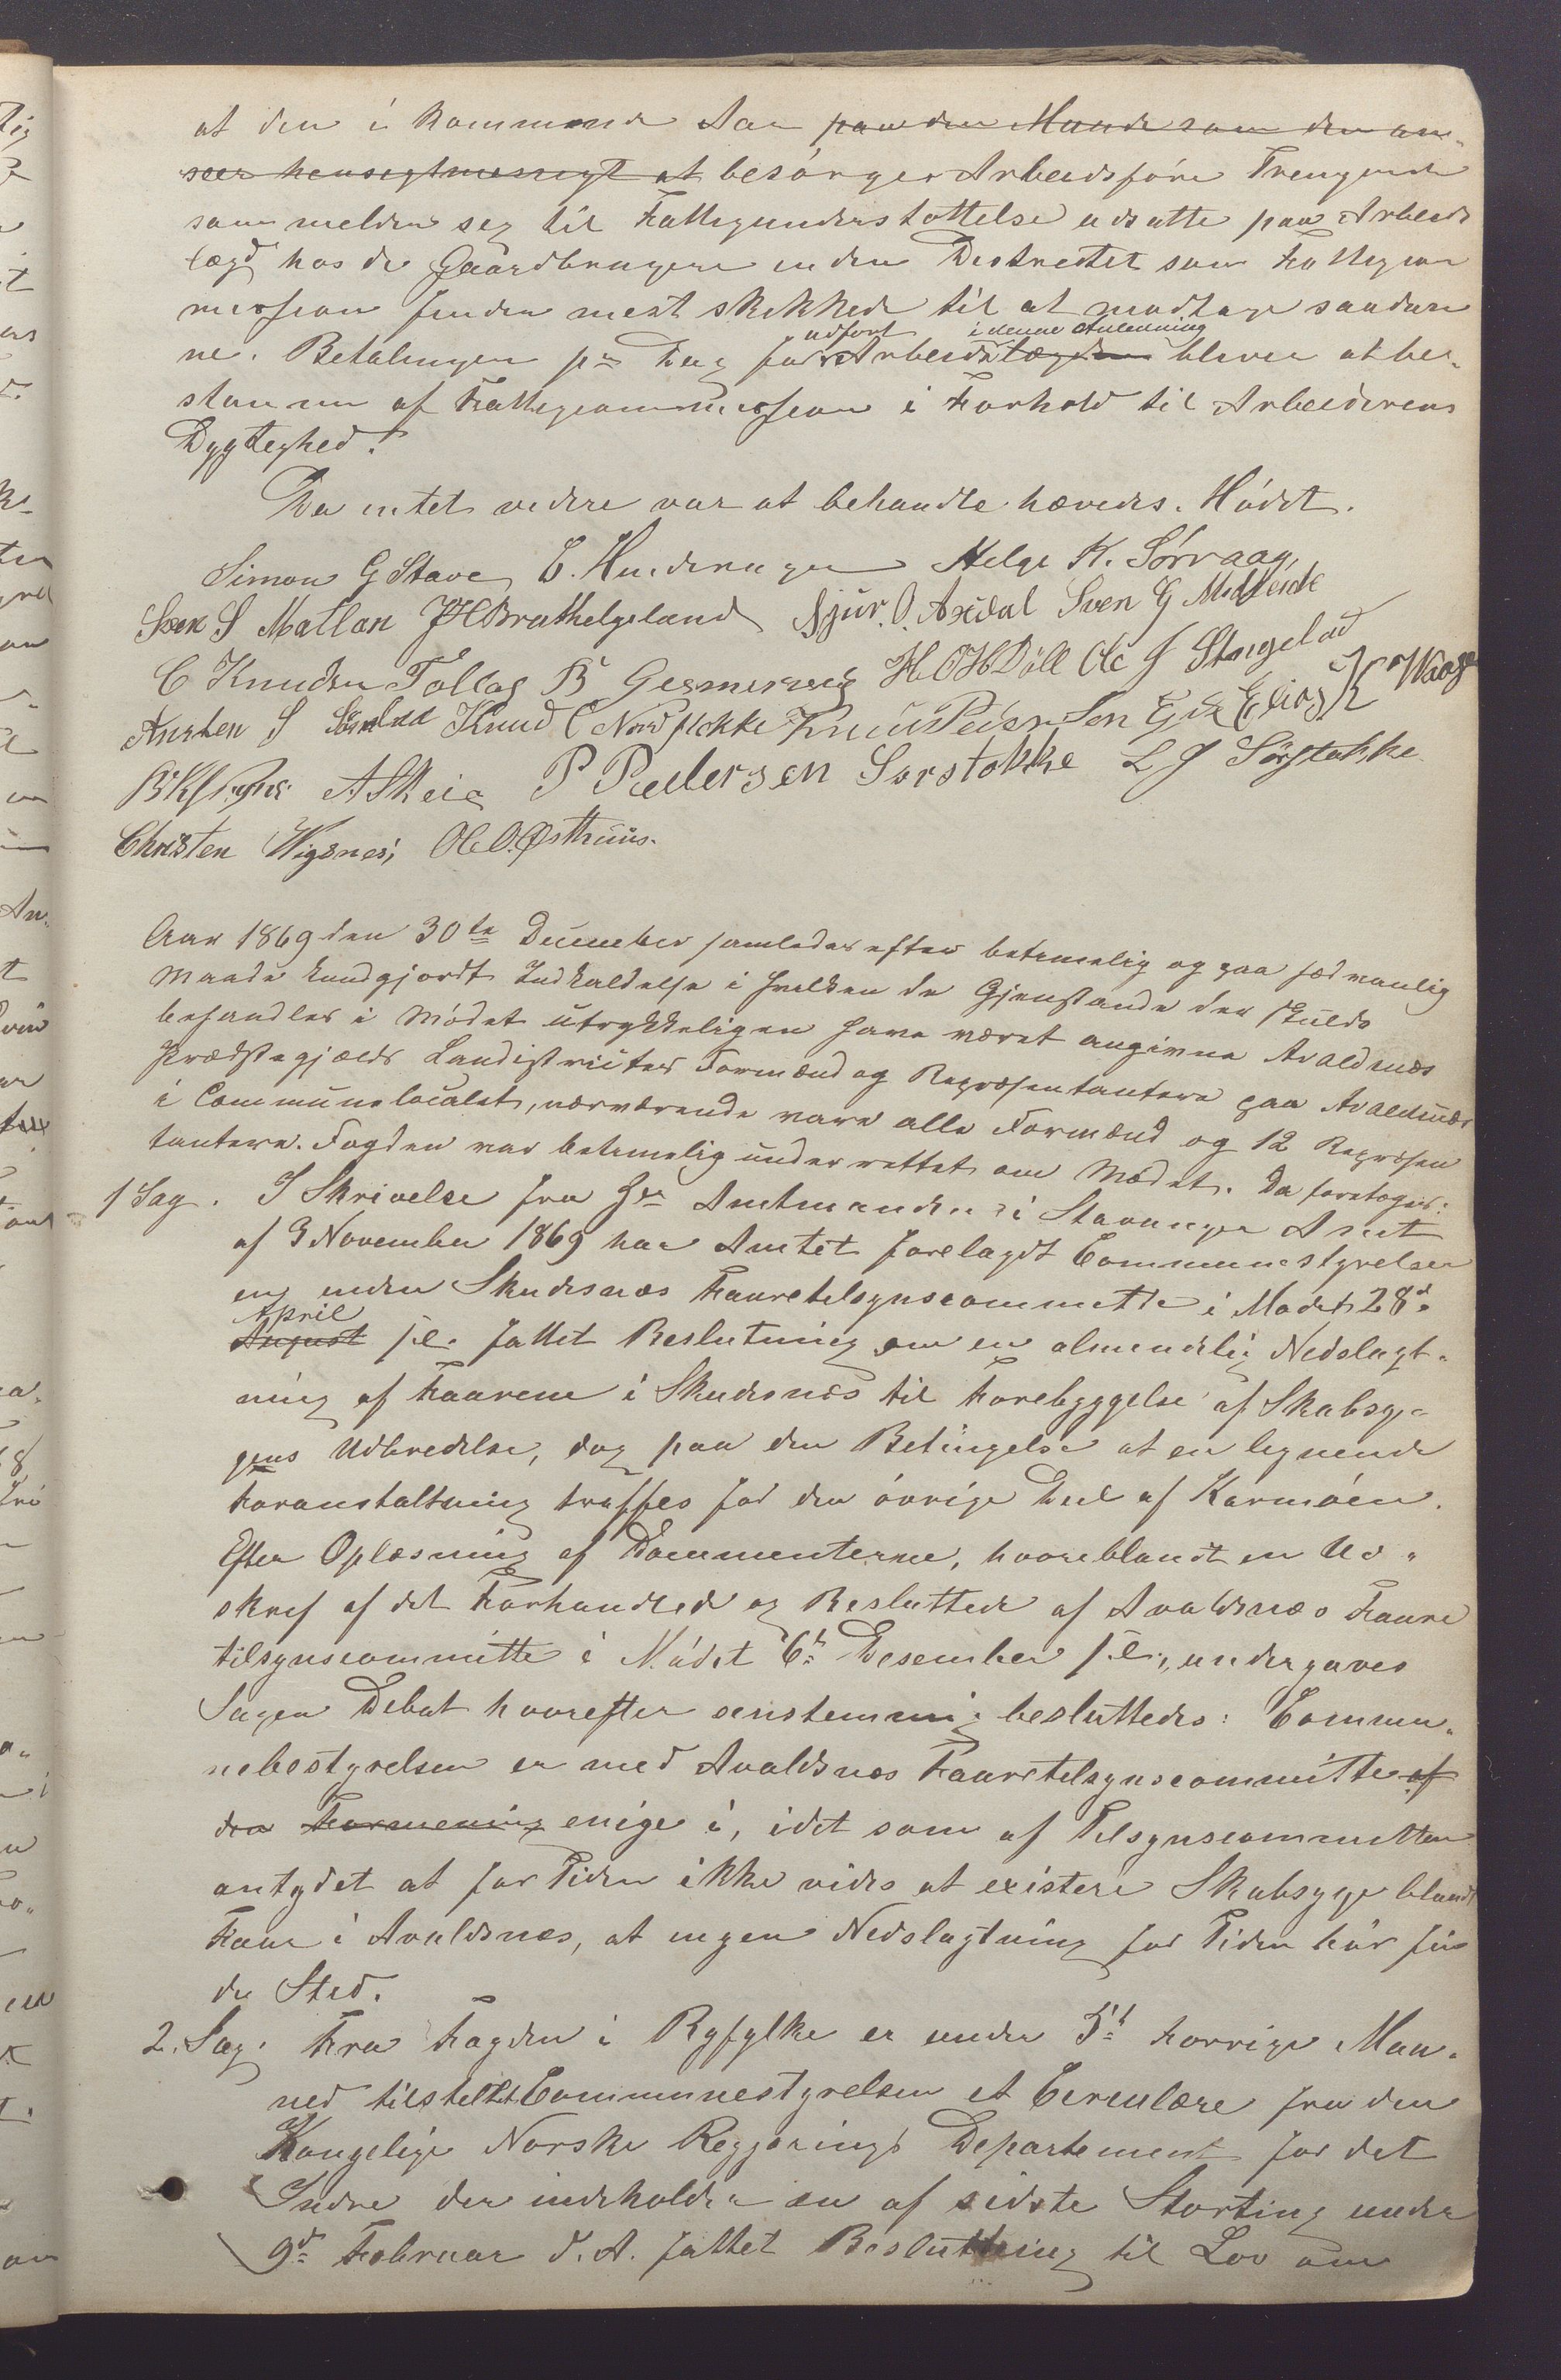 at den i kommende Aar paa den Maade som den an-
seer hensigtmæssigt at besörger Arbeidsföre Trengende
som melder seg til Fattigunderstøttelse udsatte paa Arbeids
lægd hos de Gaardbrugere inden Destrectet som Fattigcom
mission finder mest skikkede til at modtage saadan
udfört i denne Anledning
ne. Betalingen pr Dag for Arbeidslægden bliver at be-
stemme af Fattigcommissionen i Forhold til Arbeiderens
Dygteghed.
Da intet videre var at behandle hævedes Mödet.
Simon G Stave E. Hundevagen Helge K. Sörvaag,
Sven S Matlan JHBrathelgeland Njur. O. Axdal Sven G Medhende
C Knudsen Tollag B Gesmersvig H.O.H.Dåll Ole J Stangeland
Ansten S Knud C Nordstokke Knud Pedersen Eide Elias K Waage
A Skeie P Pedersen Sørstokke L J Sörstokke
Christen Vigsnes; Ole O. Østhuus.
Aar 1869 den 30te December samledes efter betimelig og paa sædvanlig
Maade kundgjordt Indkaldelse i hvilken de Gjenstande der skulde
behandles i Mödet utrykkeligen have været angivne Avaldsnæs
Prædstegjælds Landistricter Formænd og Repræsentantere paa Avaldsnæs
i Communelocalet, nærværende vare alle Formænd og 12 Repræsen
tantere. Fogden var betimelig underrettet om Mødet. Da foretoges:
1 Sag. I Skrivelse fra Hr Amtmanden i Stavanger Amt
af 3 November 1869 har Amtet forelagdt Communestyrelsen
en under Skudesnæs Faaretilsynscommitte i Mødet 28de
April
August s.l. fattet Beslutning om en almindelig Nedslagt-
ning af Faarene i Skudesnæs til Forebyggelse af Skabsy-
gens Udbredelse, dog paa den Betingelse at en lignende
Foranstaltning treffes for den övrige Deel af Karmöen.
Efter Oplæsning af Documenterne, hvoreblandt en Ud-
skrif af det Forhandlede og Besluttede af Avaldsnæs Faare
tilsynscommitte i Mödet 6te Desember s.l., undergaves
Sagen Debat hvorefter eenstemmig besluttedes: Commu-
nebestyrelsen er med Avaldsnæs Faaretilsynscommitte af
den Formening enige i, idet som af Tilsynscommitteen
antydet at for Tiden ikke vides at existere Skabsyge blandt
Faar i Avaldsnæs, at ingen Nedslagtning for Tiden bör fin
de Sted.
2. Sag. Fra Fogden i Ryfylke er under 5te forrige Maa-
ned tilstellet Communestyrelsen et Circulære fra den
Kongelige Norske Regjerings Departement for det
Indre der indeholder en af sidste Storting under
9de Februar d.A. fattet Besluttning til Lov om